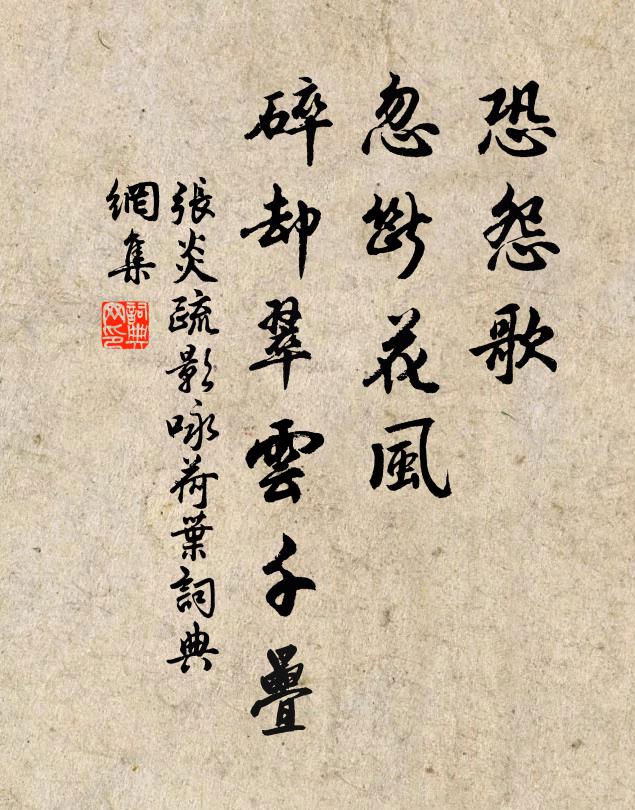 恐怨歌
忽斷花風
碎却翠雲千疊
張炎疏影咏荷葉詞典
網集
詞典網印